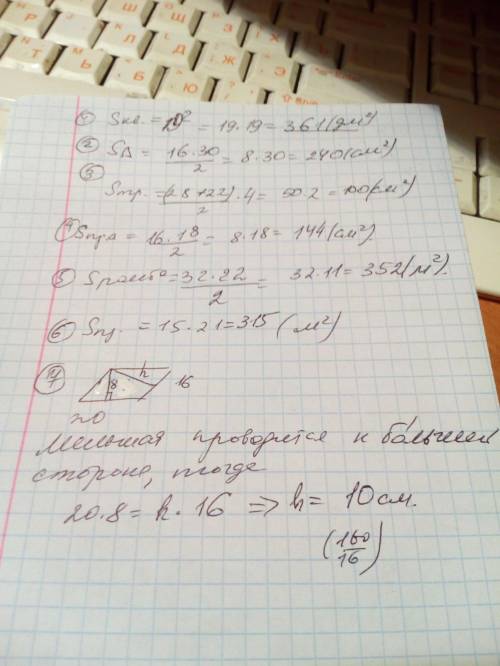 Ш Щ З
О Л Д Ж
Т Ь Б Ю
① Sкв. = 19² = 19·19 = 361 (дм²)
② SΔ = 16·30/2 = 8·30 = 240 (см²)
③ Sтр. = (28+22)/2 · 4 = 50·2 = 100 (см²)
④ Sпр Δ = 16·18/2 = 8·18 = 144 (см²).
⑤ Sромба = 32·22/2 = 32·11 = 352 (м²).
⑥ Sпр. = 15·21 = 315 (м²)
№7 8 h 16
20
Меньшая проводится к большей
стороне, тогда
20·8 = h·16 ⇒ h = 10 см.
(160/16)